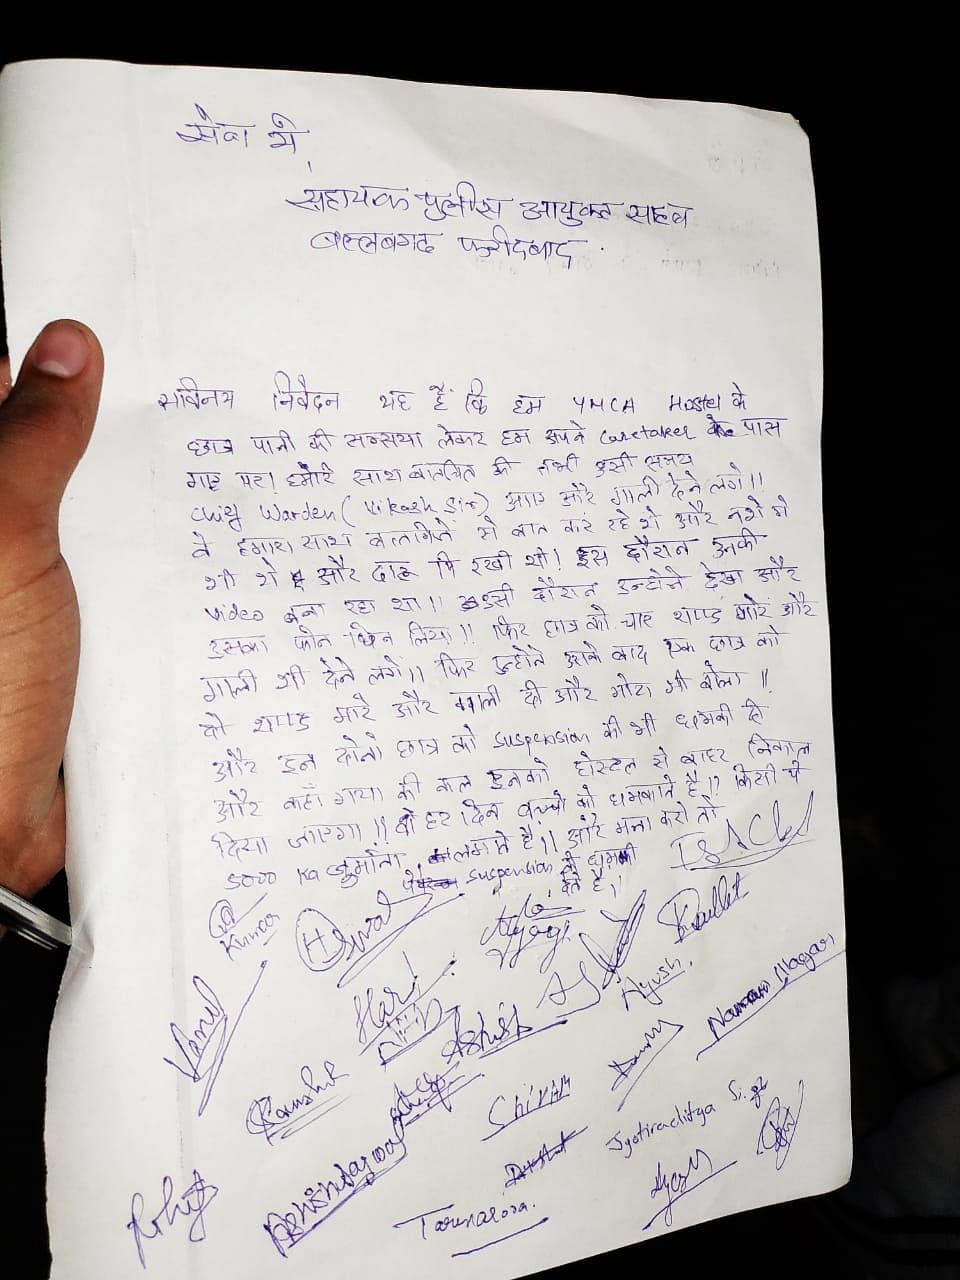 सेवा मे,
सहायक पुलीस आयुक्त साहब
बल्लबगढ फरीदबाद.
सविनय निवेदन यह है कि हम YMCA Hostel के
छात्र पानी की समस्या लेकर हम अपने Caretaker के पास
गए पर! हमारे साथ बातचित की तभी उसी समय
Chief Warden (Vikash Sir) आए और गाली देने लगे।।
वे हमारा साथ बत्तमिजे से बात कर रहे थे और नशे मे
भी थे और दारू पि रखी थी! इस दौरान उनकी
video बना रहा था।। उसी दौरान उन्होने देखा और
उसका फोन छिन लिया!! फिर छात्र को चार थप्पड मारे और
गाली भी देने लगे।। फिर उन्होने उसके बाद एक छात्र को
दो थप्पड मारे और गाली दी और मोटा भी बोला।।
और इन दोनो छात्र को suspension की भी धमकी दी
और कहाँ गया की कल इनको होस्टल से बाहर निकाल
दिया जाएगा!! वो हर दिन बच्चो को धमकाते है!! किसी पे
5000 Ka जुर्माना लगाते है।। और मना करो तो
suspension की धमकी
देते है।
Kumar
Hari
Ayush
Ashish
Naman Nagar
Kaushik
Shivam
Jyotiraditya Singh
Rohit
Tarun arora.